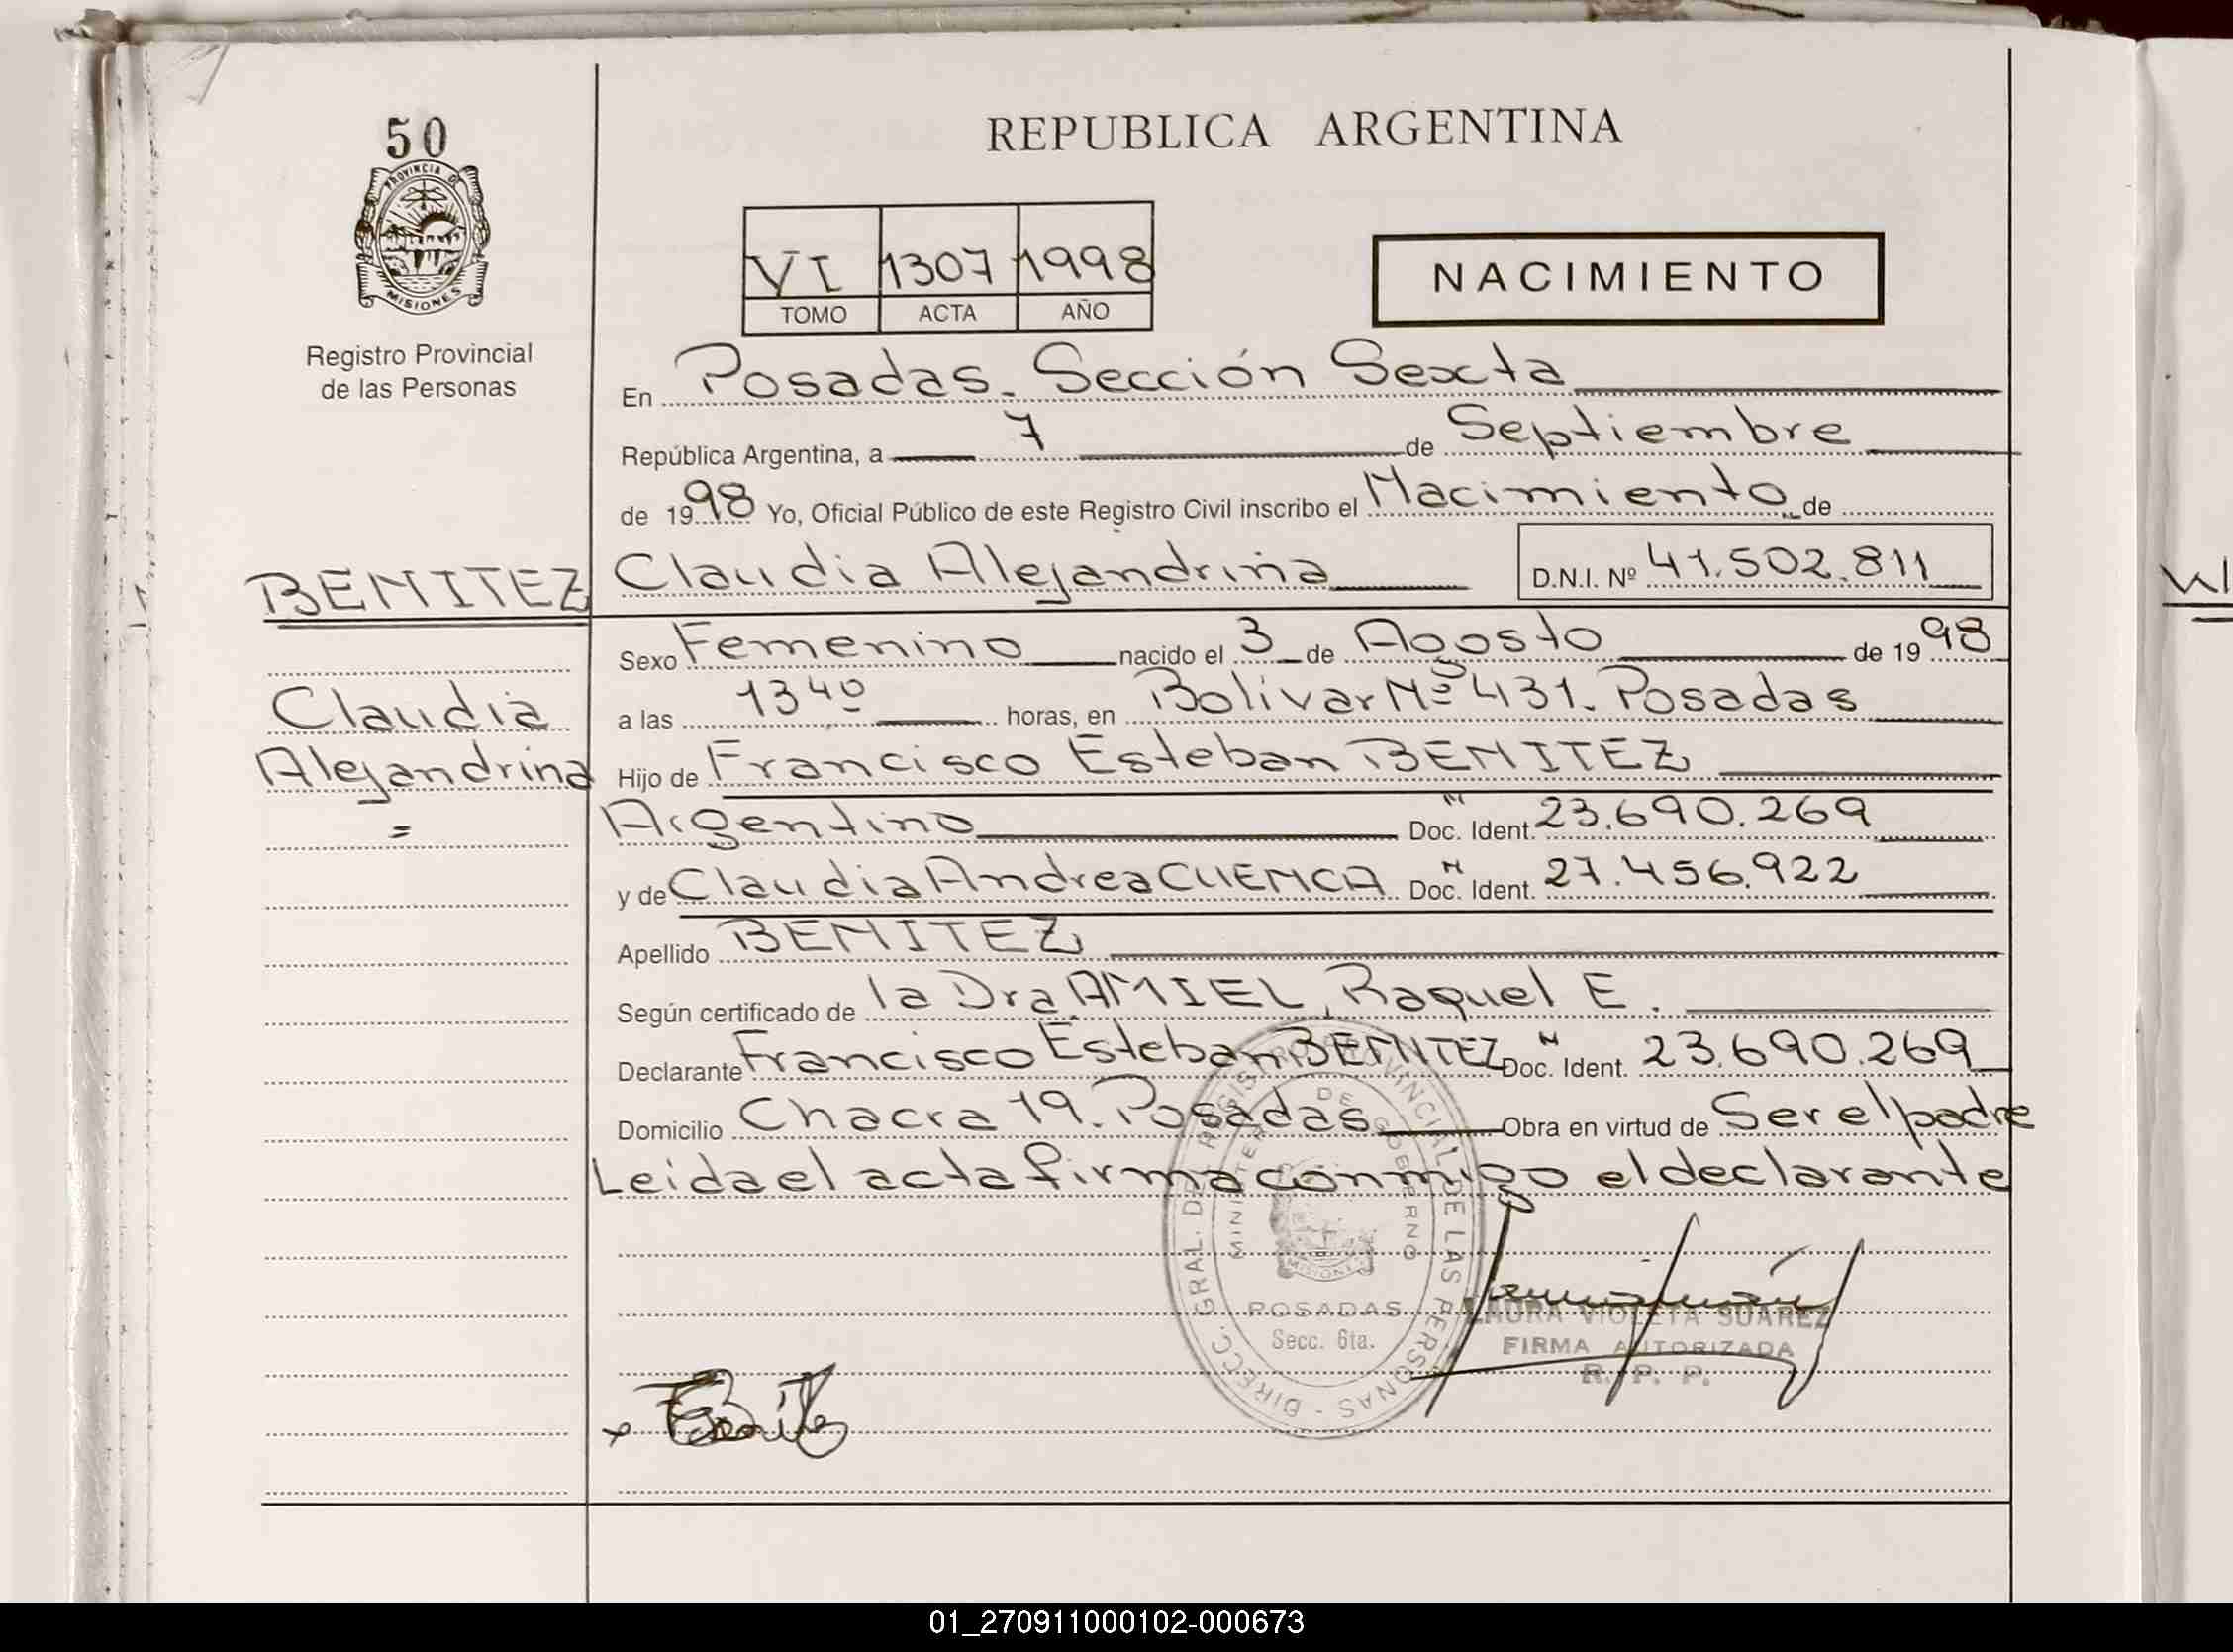 50
PROVINCIA DE
MISIONES
Registro Provincial
de las Personas
REPUBLICA ARGENTINA
VI 1307 1998
TOMO ACTA AÑO
NACIMIENTO
En Posadas. Sección Sexta
República Argentina, a 7 de Septiembre
de 1998 Yo, Oficial Público de este Registro Civil inscribo el Nacimiento de
BENITEZ Claudia Alejandrina D.N.I. Nº 41.502.811
Sexo Femenino nacido el 3 de Agosto de 1998
Claudia
a las 13 40 horas, en Bolívar Nº 431. Posadas
Alejandrina
Hijo de Francisco Esteban BENITEZ
=
Argentino Doc. Ident. N 23.690.269
y de Claudia Andrea CUENCA Doc. Ident. N 27.456.922
Apellido BENITEZ
Según certificado de la Dra. AMIEL, Raquel E.
Declarante Francisco Esteban BENITEZ Doc. Ident. N 23.690.269
Domicilio Chacra 19. Posadas Obra en virtud de Ser el padre
Leida el acta firma conmigo el declarante
DIRECC. GRAL. DEL REGISTRO PROVINCIAL DE LAS PERSONAS
MINISTERIO DE GOBIERNO
MISIONES
POSADAS
Secc. 6ta.
LAURA VIOLETA SUAREZ
FIRMA AUTORIZADA
R. P. P.
01_270911000102-000673